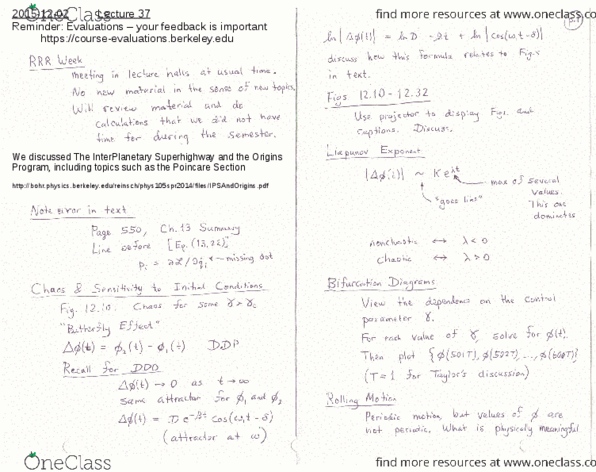 OneClass
find more resources at www.oneclass.co
2015-12-02 Lecture 37
Reminder: Evaluations – your feedback is important
https://course-evaluations.berkeley.edu
RRR Week
meeting in lecture halls at usual time.
No new material in the sense of new topics.
Will review material and do
calculations that we did not have
time for during the semester.
We discussed The InterPlanetary Superhighway and the Origins
Program, including topics such as the Poincare Section
http://bohr.physics.berkeley.edu/reinsch/phys105spr2014/files/IPSAndOrigins.pdf
Note error in text
Page 550, Ch. 13 Summary
Line before [Eq. (13.22)]
pᵢ = ∂L/∂q̇ᵢ ← missing dot
Chaos & Sensitivity to Initial Conditions
Fig. 12.10. Chaos for some γ > γc
"Butterfly Effect"
Δφ(t) = φ₂(t) - φ₁(t) DDP
Recall for DDO
Δφ(t) → 0 as t → ∞
same attractor for φ₁ and φ₂
Δφ(t) = D e^-βt cos(ω₁t - δ)
(attractor at ω)
ln |Δφ(t)| = ln D - βt + ln |cos(ω₁t - δ)|
discuss how this formula relates to Figs
in text.
Figs 12.10 - 12.32
Use projector to display Figs. and
captions. Discuss.
Liapunov Exponent
|Δφ(t)| ~ K e^λt
"goes like"
max of several
values.
This one
dominates
nonchaotic ↔ λ < 0
chaotic ↔ λ > 0
Bifurcation Diagrams
View the dependence on the control
parameter γ.
For each value of γ, solve for φ(t).
Then plot {φ(501T), φ(502T), ..., φ(600T)}
(T = 1 for Taylor's discussion)
Rolling Motion
Periodic motion, but values of φ are
not periodic. What is physically meaningful
OneClass
find more resources at www.oneclass.co